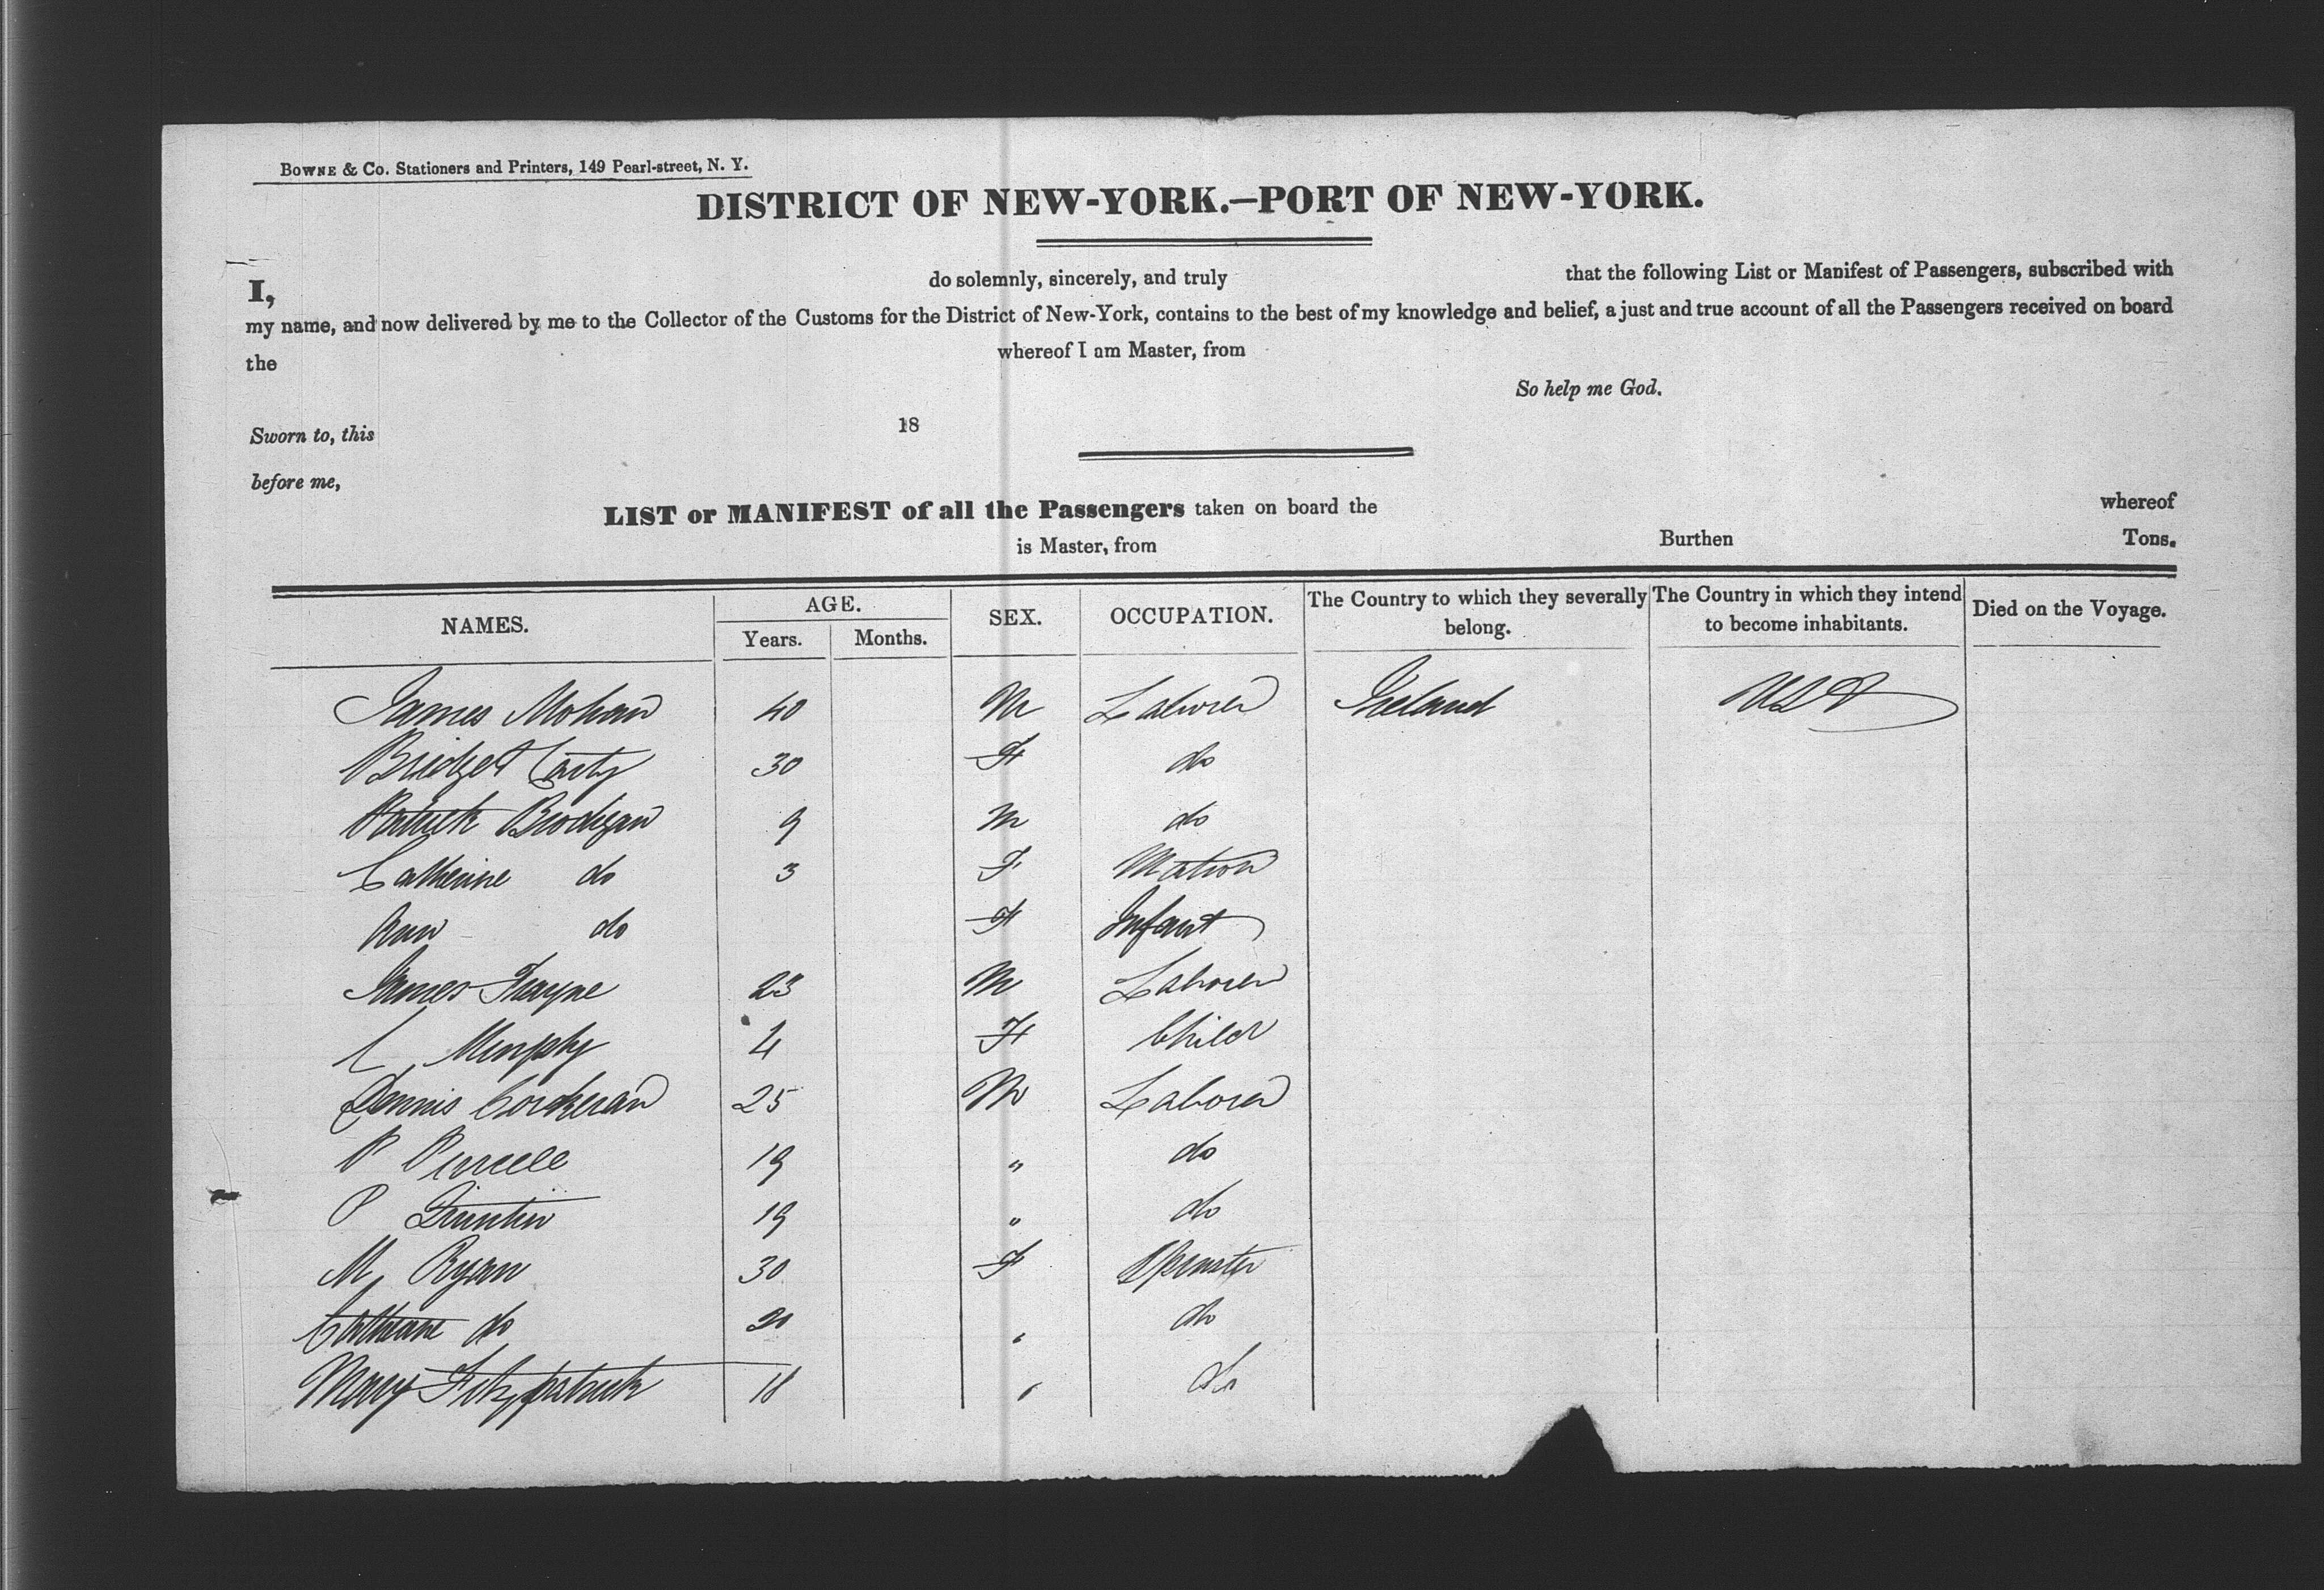 BOWNE & Co. Stationers and Printers, 149 Pearl-street, N. Y.
DISTRICT OF NEW-YORK.—PORT OF NEW-YORK.
I, do solemnly, sincerely, and truly that the following List or Manifest of Passengers, subscribed with
my name, and now delivered by me to the Collector of the Customs for the District of New-York, contains to the best of my knowledge and belief, a just and true account of all the Passengers received on board
the whereof I am Master, from
So help me God.
Sworn to, this 18
before me,
LIST or MANIFEST of all the Passengers taken on board the whereof
is Master, from Burthen Tons.
NAMES. AGE. Years. Months. SEX. OCCUPATION. The Country to which they severally belong. The Country in which they intend to become inhabitants. Died on the Voyage.
James Mohan 40 M Laborer Ireland USA
Bridget Carty 30 F do
Patrick Brodigan 9 M do
Catherine do 3 F Matron
Ann do F Infant
James 23 M Laborer
C Murphy 4 F Child
Dennis Corkeran 25 M Laborer
P Purcell 19 " do
P 19 " do
M Ryan 30 F Spinster
do 20 " do
Mary Fitzpatrick 18 " do